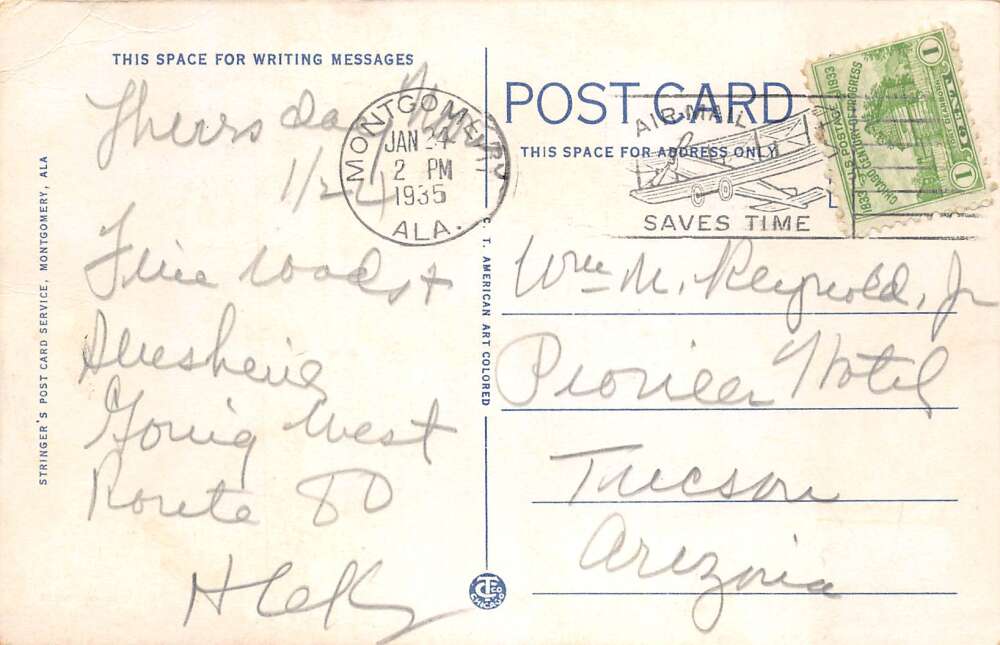 THIS SPACE FOR WRITING MESSAGES
Thurs day Noon
1/24
Fine roads &
Sunshine
Going West
Route 80
STRINGER'S POST CARD SERVICE, MONTGOMERY, ALA
C. T. AMERICAN ART COLORED
CHICAGO
POST CARD
THIS SPACE FOR ADDRESS ONLY
MONTGOMERY
JAN 24
2 PM
1935
ALA.
AIR-MAIL
SAVES TIME
1833 1933
CENTURY OF PROGRESS
U.S. POSTAGE
CHICAGO
1 CENT 1
Wm M. Reynold, Jr
Pioneer Hotel
Tucson
Arizona